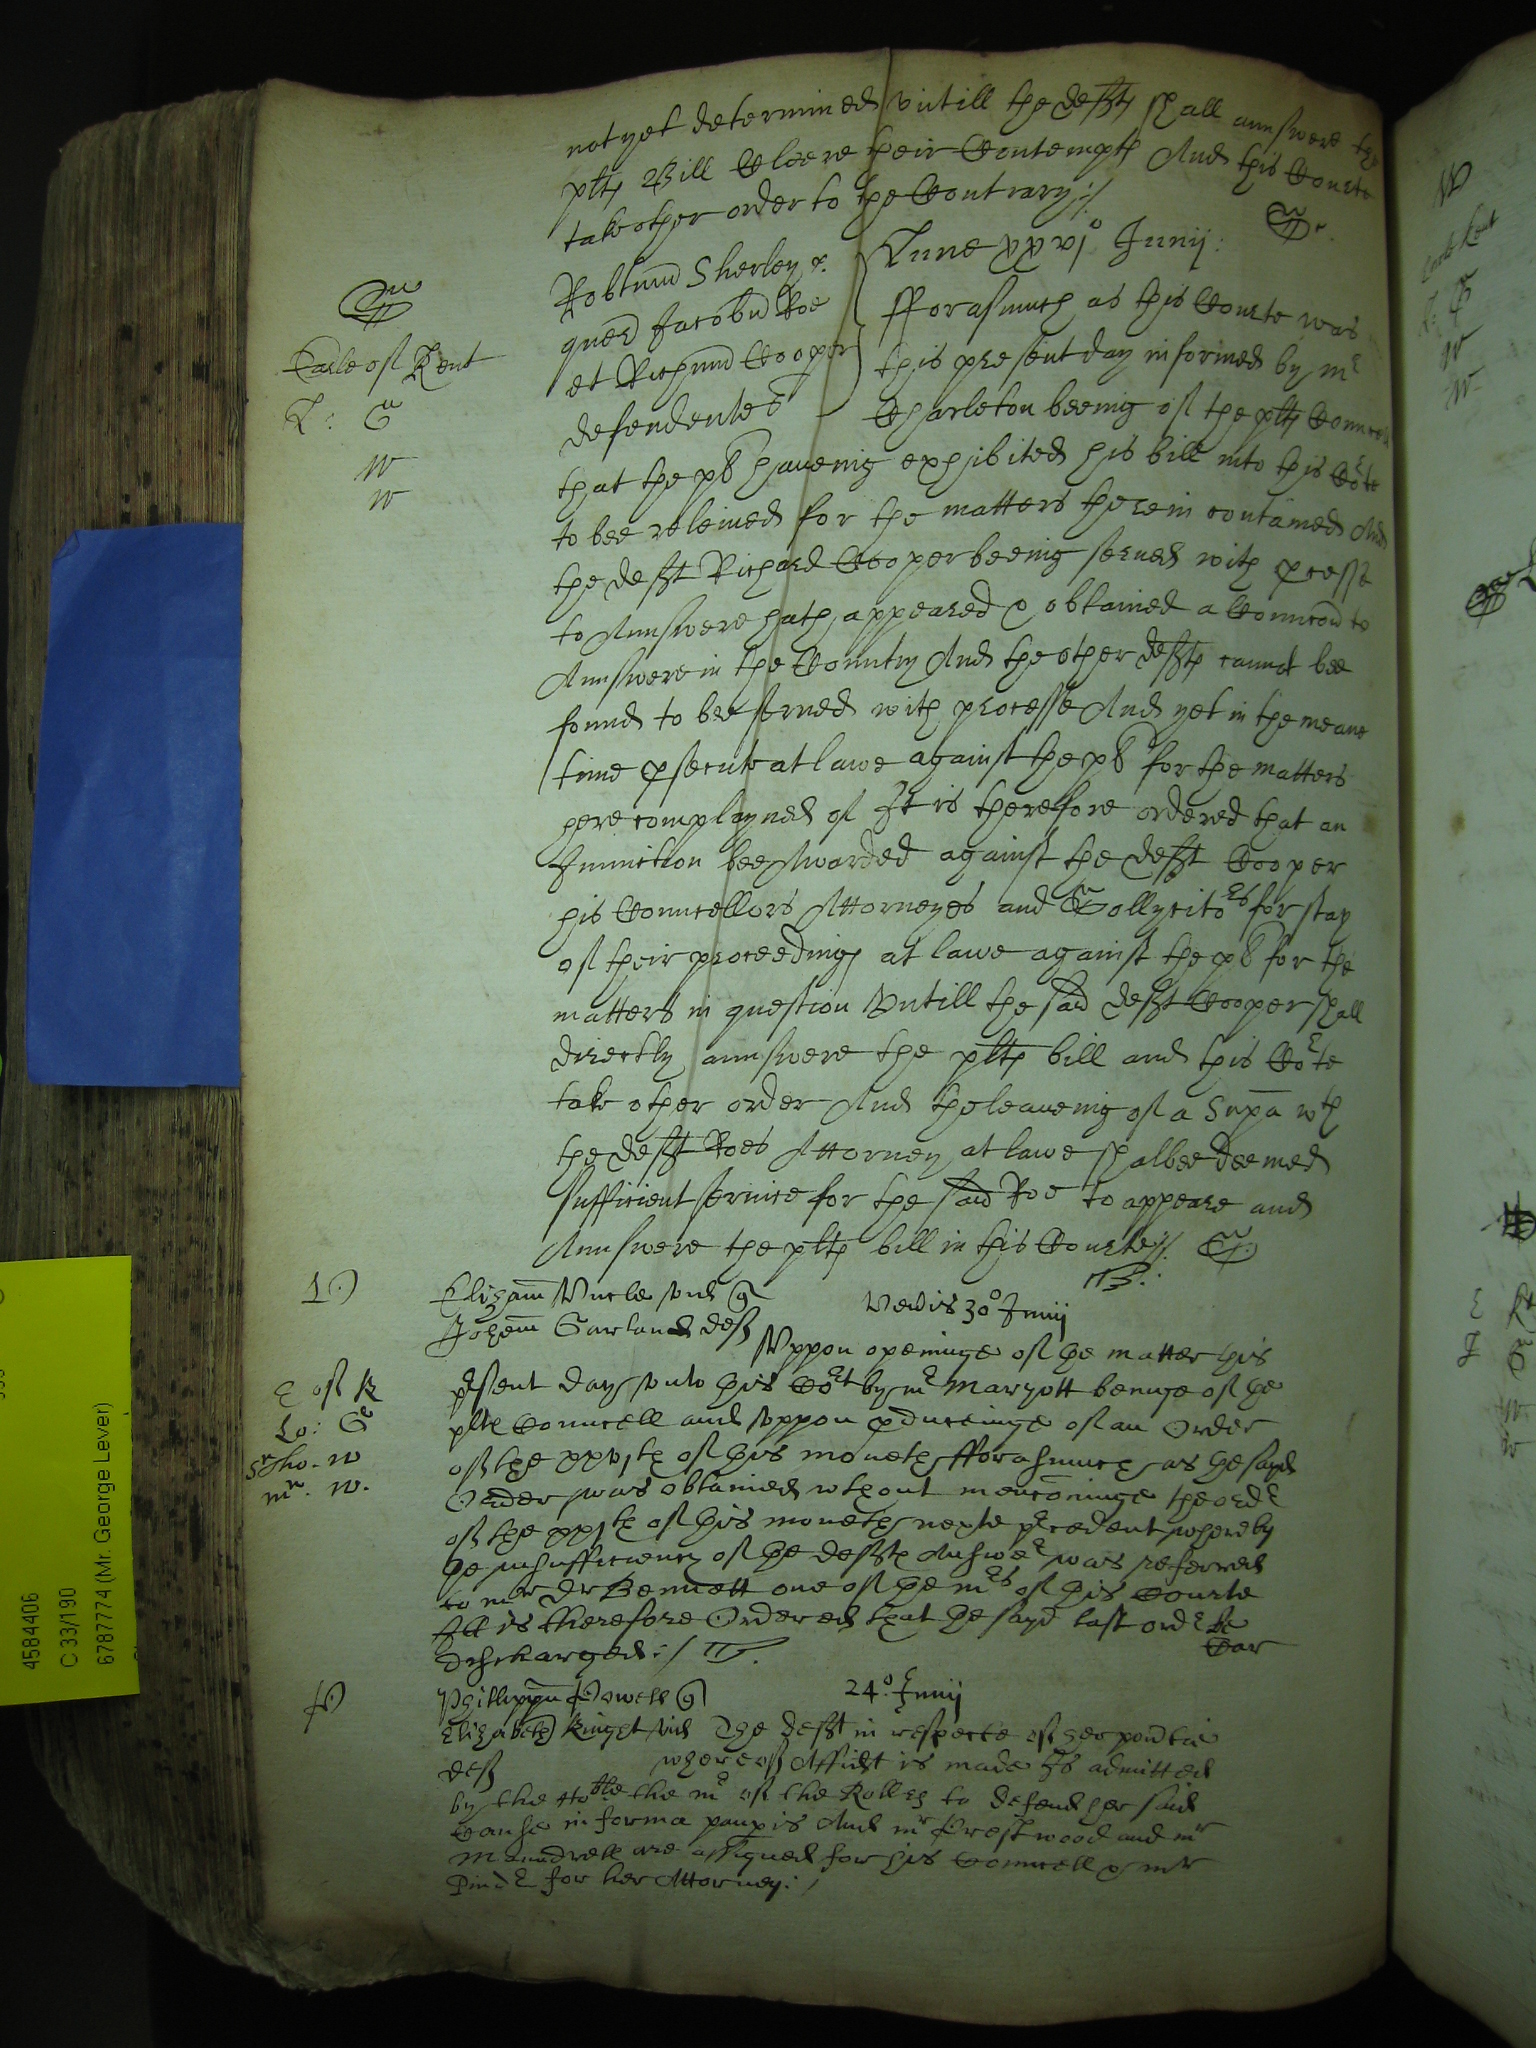 not yet determined vntill the defts shall annswere the
plts Bill Cleere their Contempts And this Courte
take other order to the Contrary
Robtum Sherley
quer Jacobu Roe
et Richum Cooper
defendentes
Lune xxvjo Junij
fforasmuch as this Courte was
this present day informed by mr
Charleton beeinig of the plts Councell
Earle of Kent
L: G
W
W
that the pl haueinig exhibited his bill into this Corte
to bee releiued for the matters therein contained And
the deft Richard Cooper beeinig serued with pcesse
to Annswere hath appeared & obtained a Comicon to
Annswere in the Country And the other defts cannot bee
found to bee serued with processe And yet in the meane
time psecute at lawe against the pl for the matters
here complayned of It is therefore ordered that an
Iniunction bee Awarded against the deft Cooper
his Councellors Attorneyes and Sollycitors for stay
of their proceedings at lawe against the pl for the
matters in question Vntill the said deft Cooper shall
directly annswere the plts bill and this Corte
take other order And the leaueinig of a Supa wth
the deft Roes Attorney at lawe shalbee deemed
sufficient seruice for the said Roe to appeare and
Annswere the plts bill in this Courte
Elizam Vncle vid q
Johem Garland def
Ven'is 30o Junij
Vppon openinge of the matter this
E of K
Lo: G
Sr Tho. W
mr. W.
psent day vnto this Cort by mr Maryott beinge of the
plts Councell and vppon pduceinge of an Order
of the xxvjth of this moneth fforasmuch as the sayd
Order was obtained wthout menconinge the ordr
of the xxjth of this moneth nexte pcedent whereby
the insufficiency of the defts Answer was referred
to mr Dr Bennett one of the mrs of this Courte
It is therefore Ordered that the sayd last ordr be
discharged
Car
P
Phillippu Powell q
Elizabeth Kinget vid
def
24o Junij
The deft in respecte of her pou'tie
whereof Affidt is made Is admitted
by the Hoble the mr of the Rolles to defend her said
Cause in forma paupis And mr Prestwood and mr
Maundrell are assigned for his Councell & mr
Pinder for her Attorney
4584406
C 33/190
6787774 (Mr. George Lever)